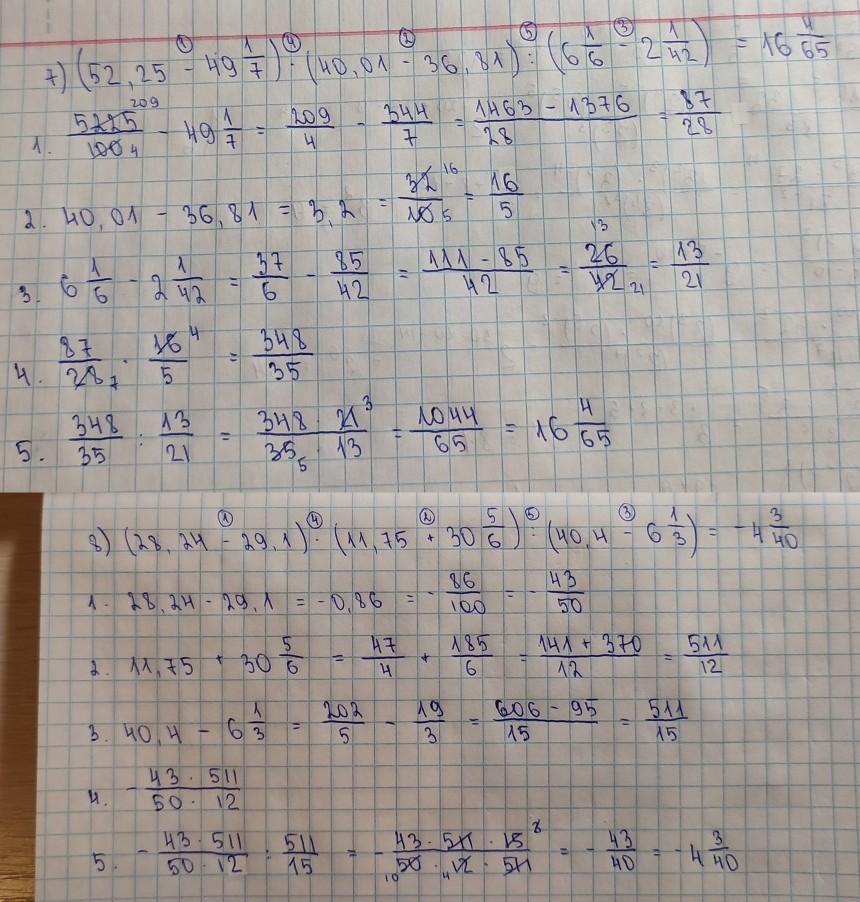 7) (52,25 - 49 1/7) · (40,01 - 36,81) : (6 1/6 - 2 1/42) = 16 4/65
1. 5225/100 - 49 1/7 = 209/4 - 344/7 = (1463 - 1376)/28 = 87/28
2. 40,01 - 36,81 = 3,2 = 32/10 = 16/5
3. 6 1/6 - 2 1/42 = 37/6 - 85/42 = (111 - 85)/42 = 26/42 = 13/21
4. 87/28 · 16/5 = 348/35
5. 348/35 : 13/21 = (348 · 21)/(35 · 13) = 1044/65 = 16 4/65
8) (28,24 - 29,1) · (11,75 + 30 5/6) : (40,4 - 6 1/3) = -4 3/40
1. 28,24 - 29,1 = -0,86 = -86/100 = -43/50
2. 11,75 + 30 5/6 = 47/4 + 185/6 = (141 + 370)/12 = 511/12
3. 40,4 - 6 1/3 = 202/5 - 19/3 = (606 - 95)/15 = 511/15
4. -(43 · 511)/(50 · 12)
5. -(43 · 511)/(50 · 12) : 511/15 = -(43 · 511 · 15)/(50 · 12 · 511) = -43/40 = -4 3/40